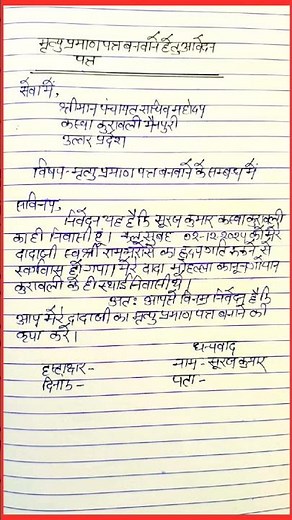 मृत्यु प्रमाण पत्र बनवाने हेतु आवेदन
पत्र
सेवा में,
श्रीमान पंचायत सचिव महोदय
कस्बा कुरावली मैनपुरी
उत्तर प्रदेश
विषय- मृत्यु प्रमाण पत्र बनवाने के सम्बन्ध में
सविनय,
निवेदन यह है कि सूरज कुमार कस्बा कुरावली
का ही निवासी हूं। कल सुबह 02-12-2024 को मेरे
दादाजी स्व० श्री रामभरोसे का हृदय गति रुकने से
स्वर्गवास हो गया। मेरे दादा मुहल्ला कानूनगोयान
कुरावली के ही स्थाई निवासी थे।
अतः आपसे विनम्र निवेदन है कि
आप मेरे दादाजी का मृत्यु प्रमाण पत्र बनाने की
कृपा करें।
धन्यवाद
हस्ताक्षर- नाम- सूरज कुमार
दिनांक- पता-